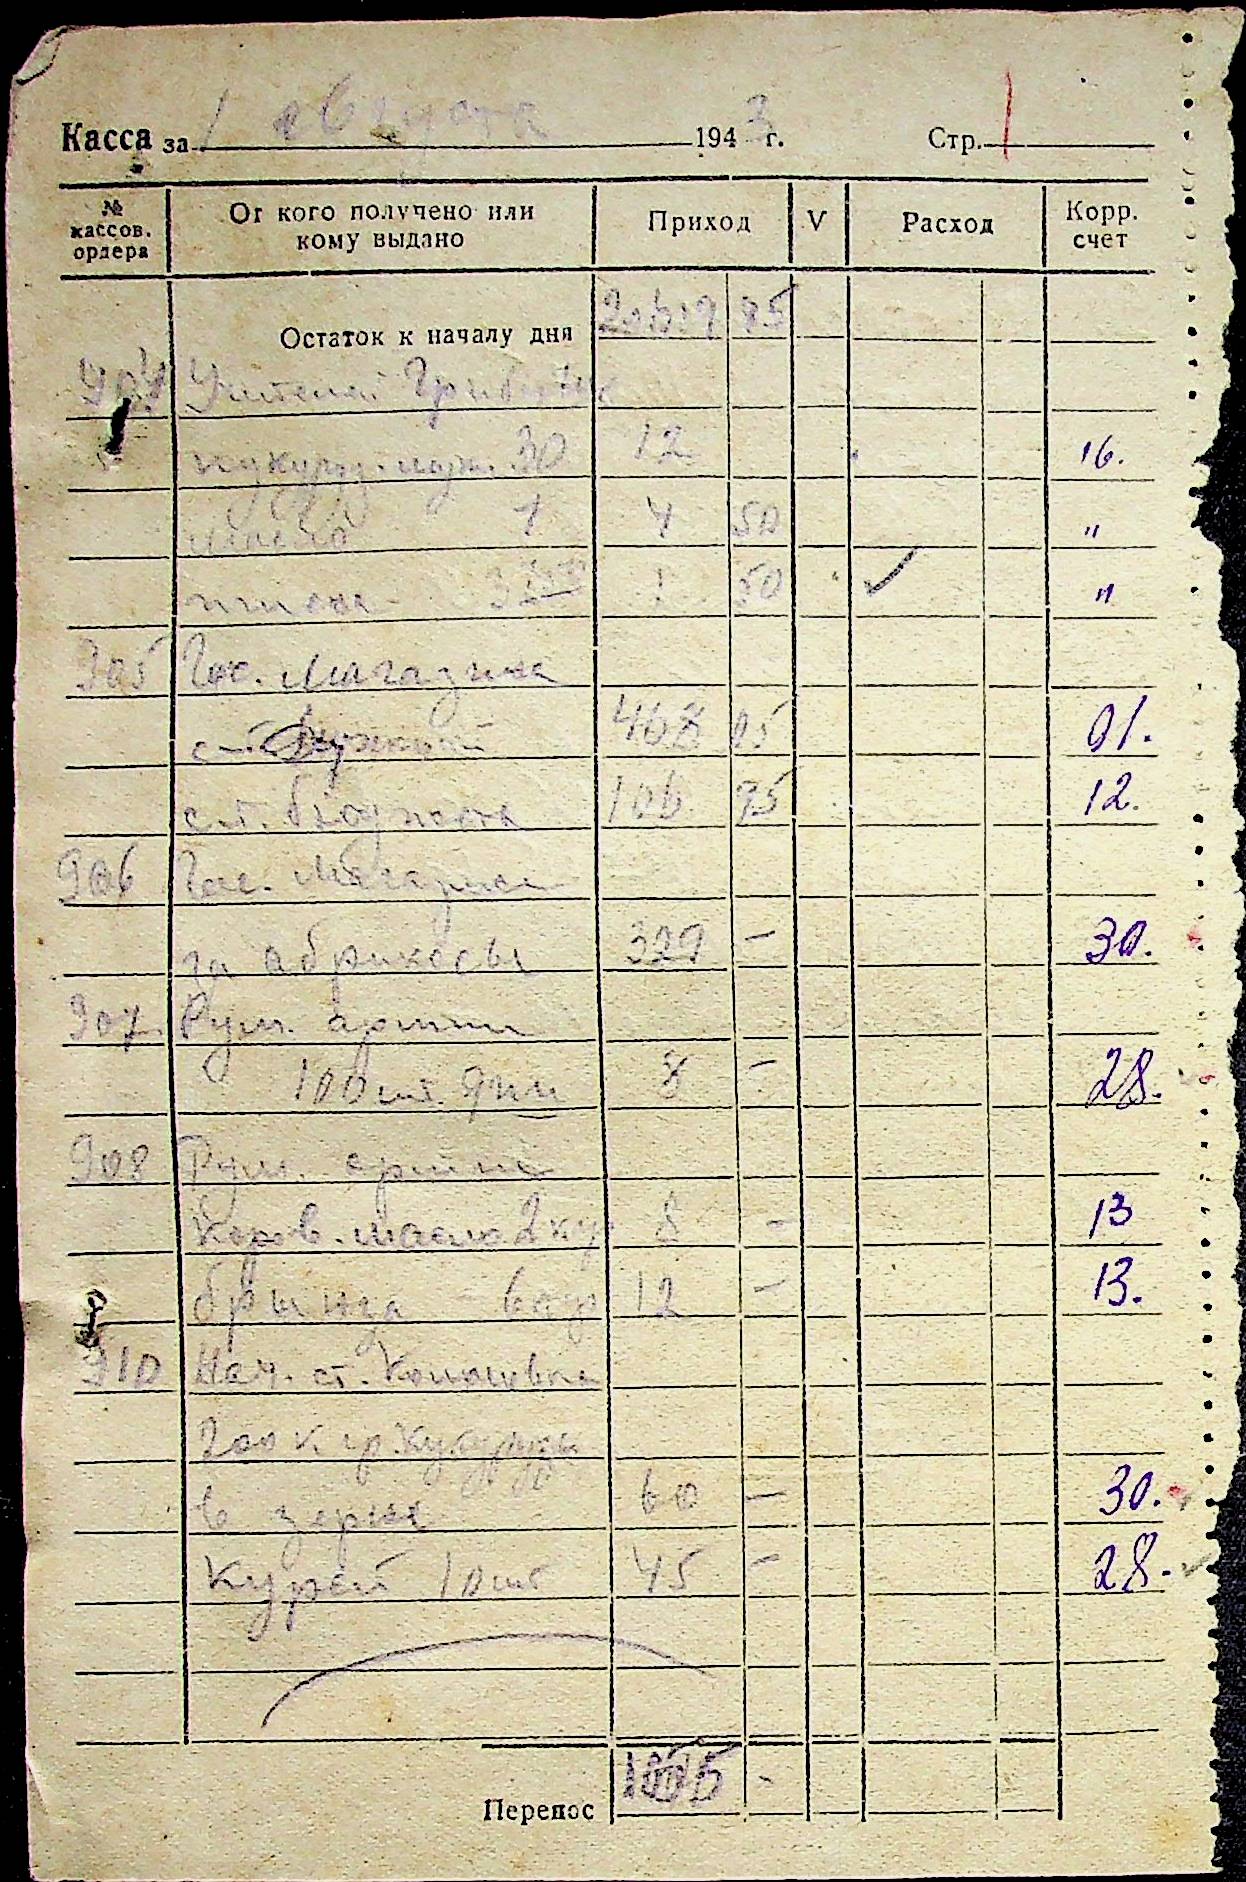 Касса за 1 августа 1943 г. Стр. 1
№ кассов. ордера От кого получено или кому выдано Приход V Расход Корр. счет
Остаток к началу дня 85
904 Учителей
30 12 16.
масло 1 4 50 "
пшена 1 50 "
905 Гос. Магазина
с-т 468 05 01.
с-т. бюджета 106 95 12.
906 Гос. Магазина
за абрикосы 329 — 30.
907 Рум. армии
100 шт. яиц 8 — 28.
908 Рум. армии
Коров. масло 2 кгр 8 — 13
брынза 6 кгр 12 — 13.
910 Нач. ст.
200 кгр. Кукурузы
в зерне 60 — 30.
Курей 10 шт 45 — 28.
Перенос -